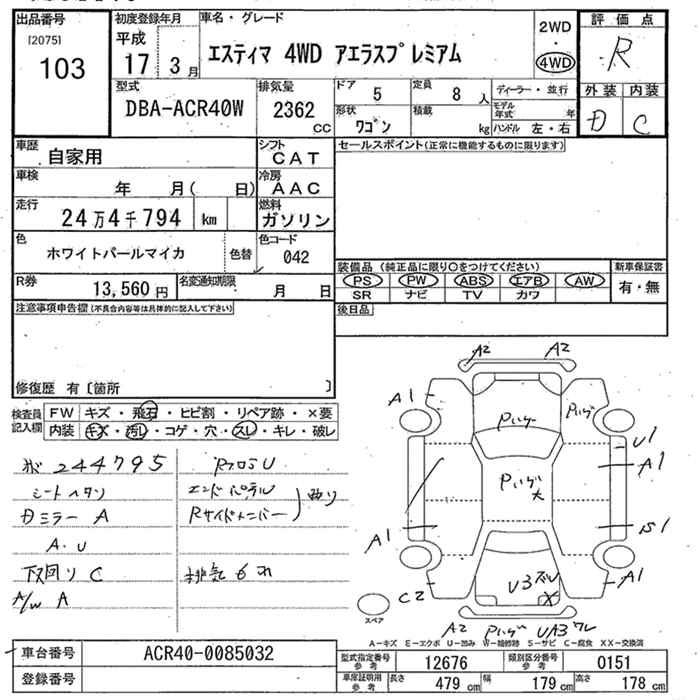 出品番号
[2075]
103
初度登録年月
平成
17 3月
車名・グレード
エスティマ 4WD アエラスプレミアム
2WD
・
4WD
評価点
R
外装 内装
D C
型式
DBA-ACR40W
排気量
2362
CC
ドア 5
定員 8 人
形状
ワゴン
積載 kg
ディーラー・並行
モデル年式 年
ハンドル 左・右
車歴
自家用
シフト
CAT
車検
年 月( 日)
冷房
AAC
走行
24万4千794 km
燃料
ガソリン
色
ホワイトパールマイカ
色替
色コード
042
R券
13,560円
名変通知期限
月 日
セールスポイント(正常に機能するものに限ります)
装備品 (純正品に限り○をつけてください)
PS PW ABS エアB AW
SR ナビ TV カワ
新車保証書
有・無
後日品
注意事項申告欄(不具合内容等は具体的に記入して下さい)
修復歴 有〔箇所 〕
検査員
記入欄
FW キズ・飛石・ヒビ割・リペア跡・×要
内装 キズ・汚レ・コゲ・穴・スレ・キレ・破レ
244795
シートヘタリ
Dミラー A
A・U
下回り C
A/W A
エンドパネル
Rサイドメンバー
排気もれ
A2 A2
A1
Pいげ
Pいげ
U1
A1
Pいげ
大
A1
S1
C2
U3
X
A1
A2 Pいげ UA3 ワレ
スペア
A－キズ E－エクボ U－凹み W－補修跡 S－サビ C－腐食 XX－交換済
車台番号
ACR40-0085032
登録番号
型式指定番号
参考
12676
類別区分番号
参考
0151
車庫証明用
参考
長さ 479 cm
幅 179 cm
高さ 178 cm